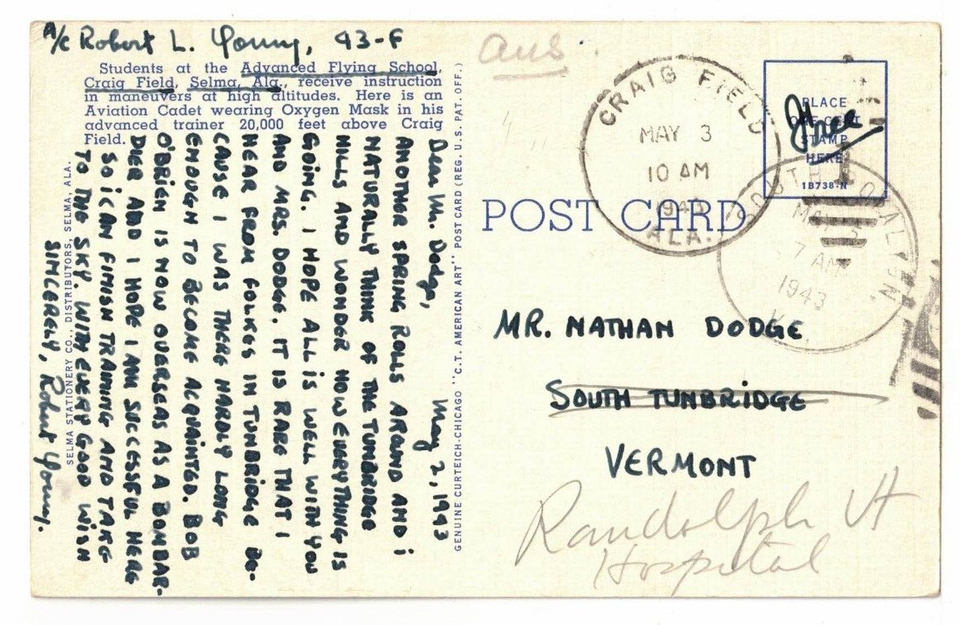 A/C Robert L. Young, 43-F
Students at the Advanced Flying School,
Craig Field, Selma, Ala., receive instruction
in maneuvers at high altitudes. Here is an
Aviation Cadet wearing Oxygen Mask in his
advanced trainer 20,000 feet above Craig
Field.
May 2, 1943
Dear Mr. Dodge,
ANOTHER SPRING ROLLS AROUND AND I
NATURALLY THINK OF THE TUNBRIDGE
HILLS AND WONDER HOW EVERYTHING IS
GOING. I HOPE ALL IS WELL WITH YOU
AND MRS. DODGE. IT IS RARE THAT I
HEAR FROM FOLKES IN TUNBRIDGE BE-
CAUSE I WAS THERE HARDLY LONG
ENOUGH TO BECOME ACQUAINTED. BOB
O'BRIEN IS NOW OVERSEAS AS A BOMBAR-
DIER AND I HOPE I AM SUCCESSFUL HERE
SO I CAN FINISH TRAINING AND TAKE
TO THE SKY. WITH EVERY GOOD WISH
SINCERELY, Robert Young.
SELMA STATIONERY CO., DISTRIBUTORS, SELMA, ALA.
GENUINE CURTEICH-CHICAGO "C.T. AMERICAN ART" POST CARD (REG. U.S. PAT. OFF.)
ans
POST CARD
CRAIG FIELD
MAY 3
10 AM
1943
ALA.
PLACE
ONE CENT
STAMP
HERE
1B738-N
Free
SOUTH ROYALTON
7 AM
1943
MR. NATHAN DODGE
SOUTH TUNBRIDGE
VERMONT
Randolph Vt
Hospital